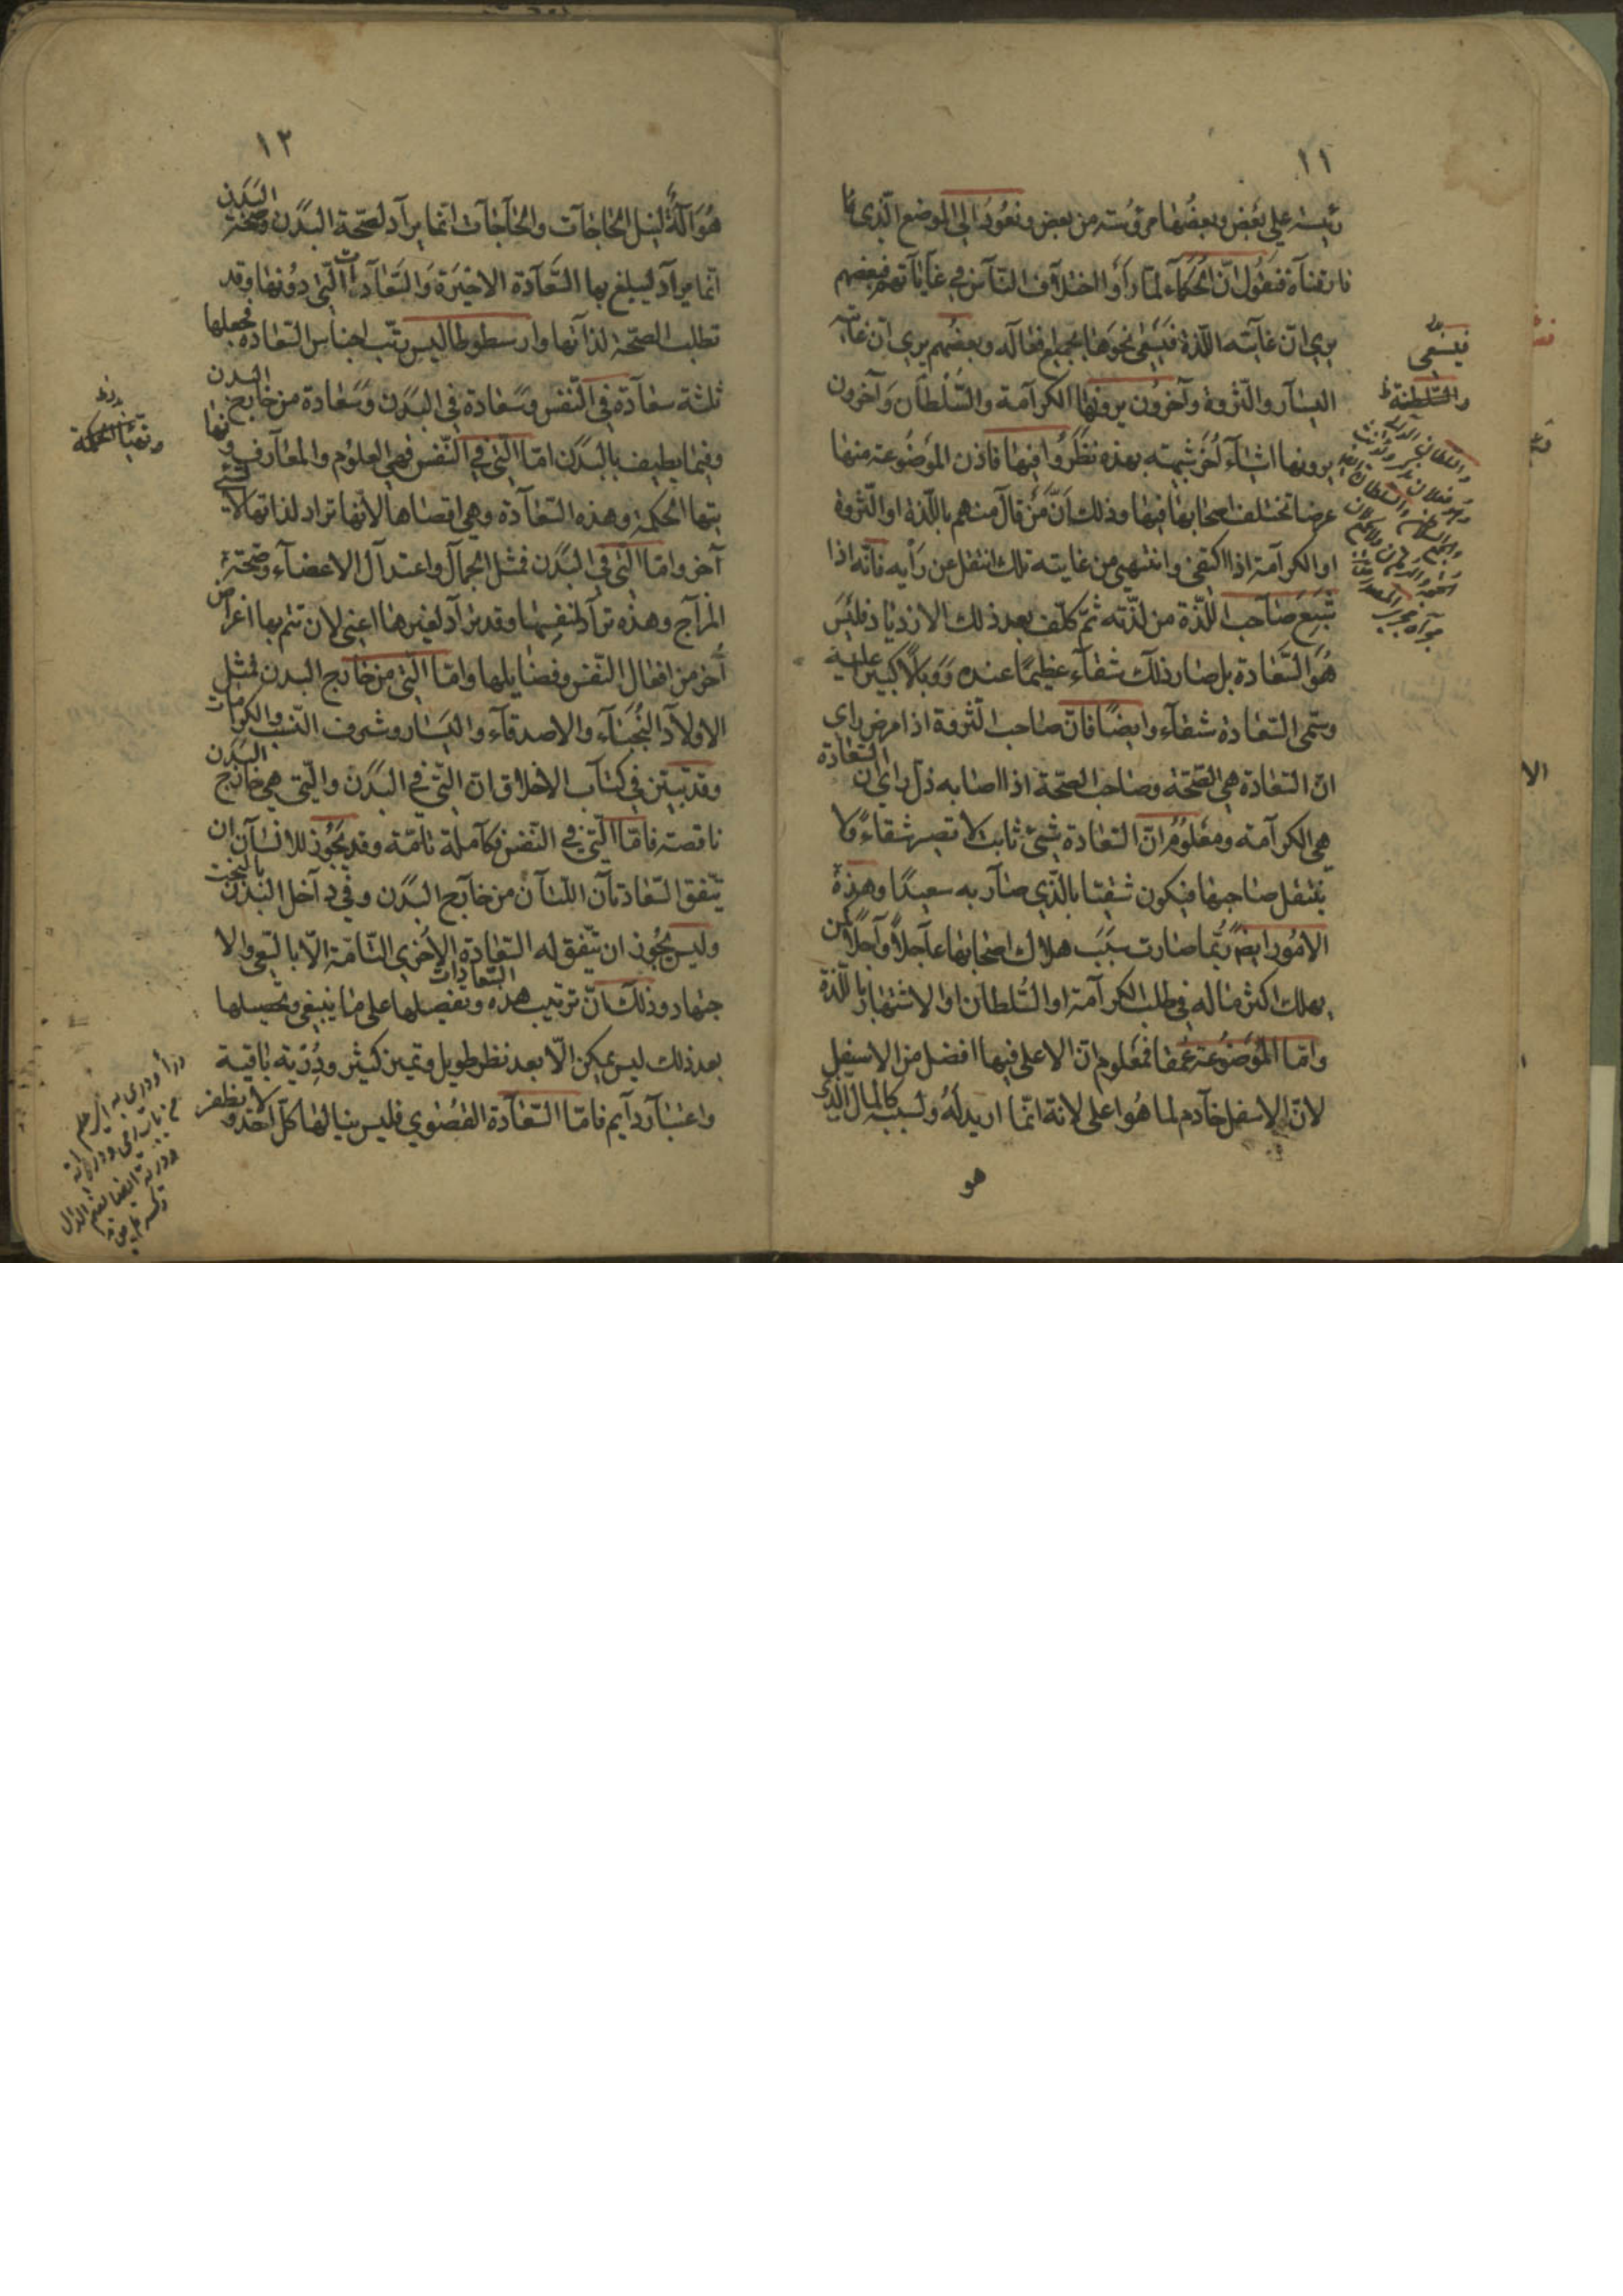 ١١
رئيسة على بعض وبعضها مرؤسته من بعض ونعود الى الموضع الذى كا
فارقناه فنقول ان الحكماء لما راوا اختلاف الناس فى غاياتهم فبعضهم
يرى ان غايته اللذة فيسعى نحوها بجميع افعاله وبعضهم يرى ان غايته
اليسار والثروة وآخرون يرونها الكرامة والسلطان وآخرون
يرونها اشياء أخر شبيهة بهذه نظروا فيها فاذن الموضوعة منها
عرضا تختلف اصحابها فيها وذلك ان من قال منهم باللذة او الثروة
او الكرامة اذا اكتفى وانتهى من غايته تلك انتقل عن رأيه فانه اذا
شبع صاحب اللذة من لذته ثم كلف بعد ذلك الازدياد فليس
هو السعادة بل صار ذلك شقاء عظيما عنده ووبالا كبيرا عليه
وسمى السعادة شقاء وايضا فان صاحب الثروة اذا مرض راى
ان السعادة هى الصحة وصاحب الصحة اذا اصابه ذل راى ان السعادة
هى الكرامة ومعلوم ان السعادة شيئ ثابت لا تصير شقاء ولا
ينتقل صاحبها فيكون شقيا بالذى صار به سعيدا وهذه
الامور ايضا ربما صارت سبب هلاك اصحابها عاجلا وآجلا كمن
يهلك اكثر ماله فى طلب الكرامة او السلطان او الاشتهار باللذة
واما الموضوعة عمقا فمعلوم ان الاعلى فيها افضل من الاسفل
لان الاسفل خادم لما هو اعلى لانه انما اريد له ولسببه كالمال الذى
هو
فيسعى
والسلطنة ظ
١٢
هو آلة لنيل الحاجات والحاجات انما يراد لصحة البدن وصحة البدن
انما يراد ليبلغ بها السعادة الاخيرة والسعادات التى دونها وقد
تطلب الصحة لذاتها وارسطوطاليس رتب اجناس السعادة فجعلها
ثلثة سعادة فى النفس وسعادة فى البدن وسعادة من خارج البدن
وفيما يطيف بالبدن اما التى فى النفس فهى العلوم والمعارف و نها
يتها الحكمة وهذه السعادة وهى اقصاها لانها تراد لذاتها لا لشئ
آخر واما التى فى البدن فمثل الجمال واعتدال الاعضاء وصحة
المزاج وهذه تراد لنفسها وقد يراد لغيرها اعنى لان تتم بها اغراض
أخر من افعال النفس وفضايلها واما التى من خارج البدن فمثل
الاولاد النجباء والاصدقاء واليسار وشرف النسب والكرامات
وقد تبين فى كتاب الاخلاق ان التى فى البدن والتى هى خارج البدن
ناقصة فاما التى فى النفس فكاملة تامة وقد يجوز للانسان ان
يتفق السعادتان اللتان من خارج البدن وفى داخل البدن بالبخت
وليس يجوز ان يتفق له السعادة الاخرى التامة الا بالسعى والا
جتهاد وذلك ان ترتيب هذه السعادات وتفصيلها على ما ينبغى وتحصيلها
بعد ذلك ليس يمكن الا بعد نظر طويل وتميز كثير ودربة باقية
واعتبار دايم فاما السعادة القصوى فليس ينالها كل احد و لا يظفر
ونهايتها الحكمة